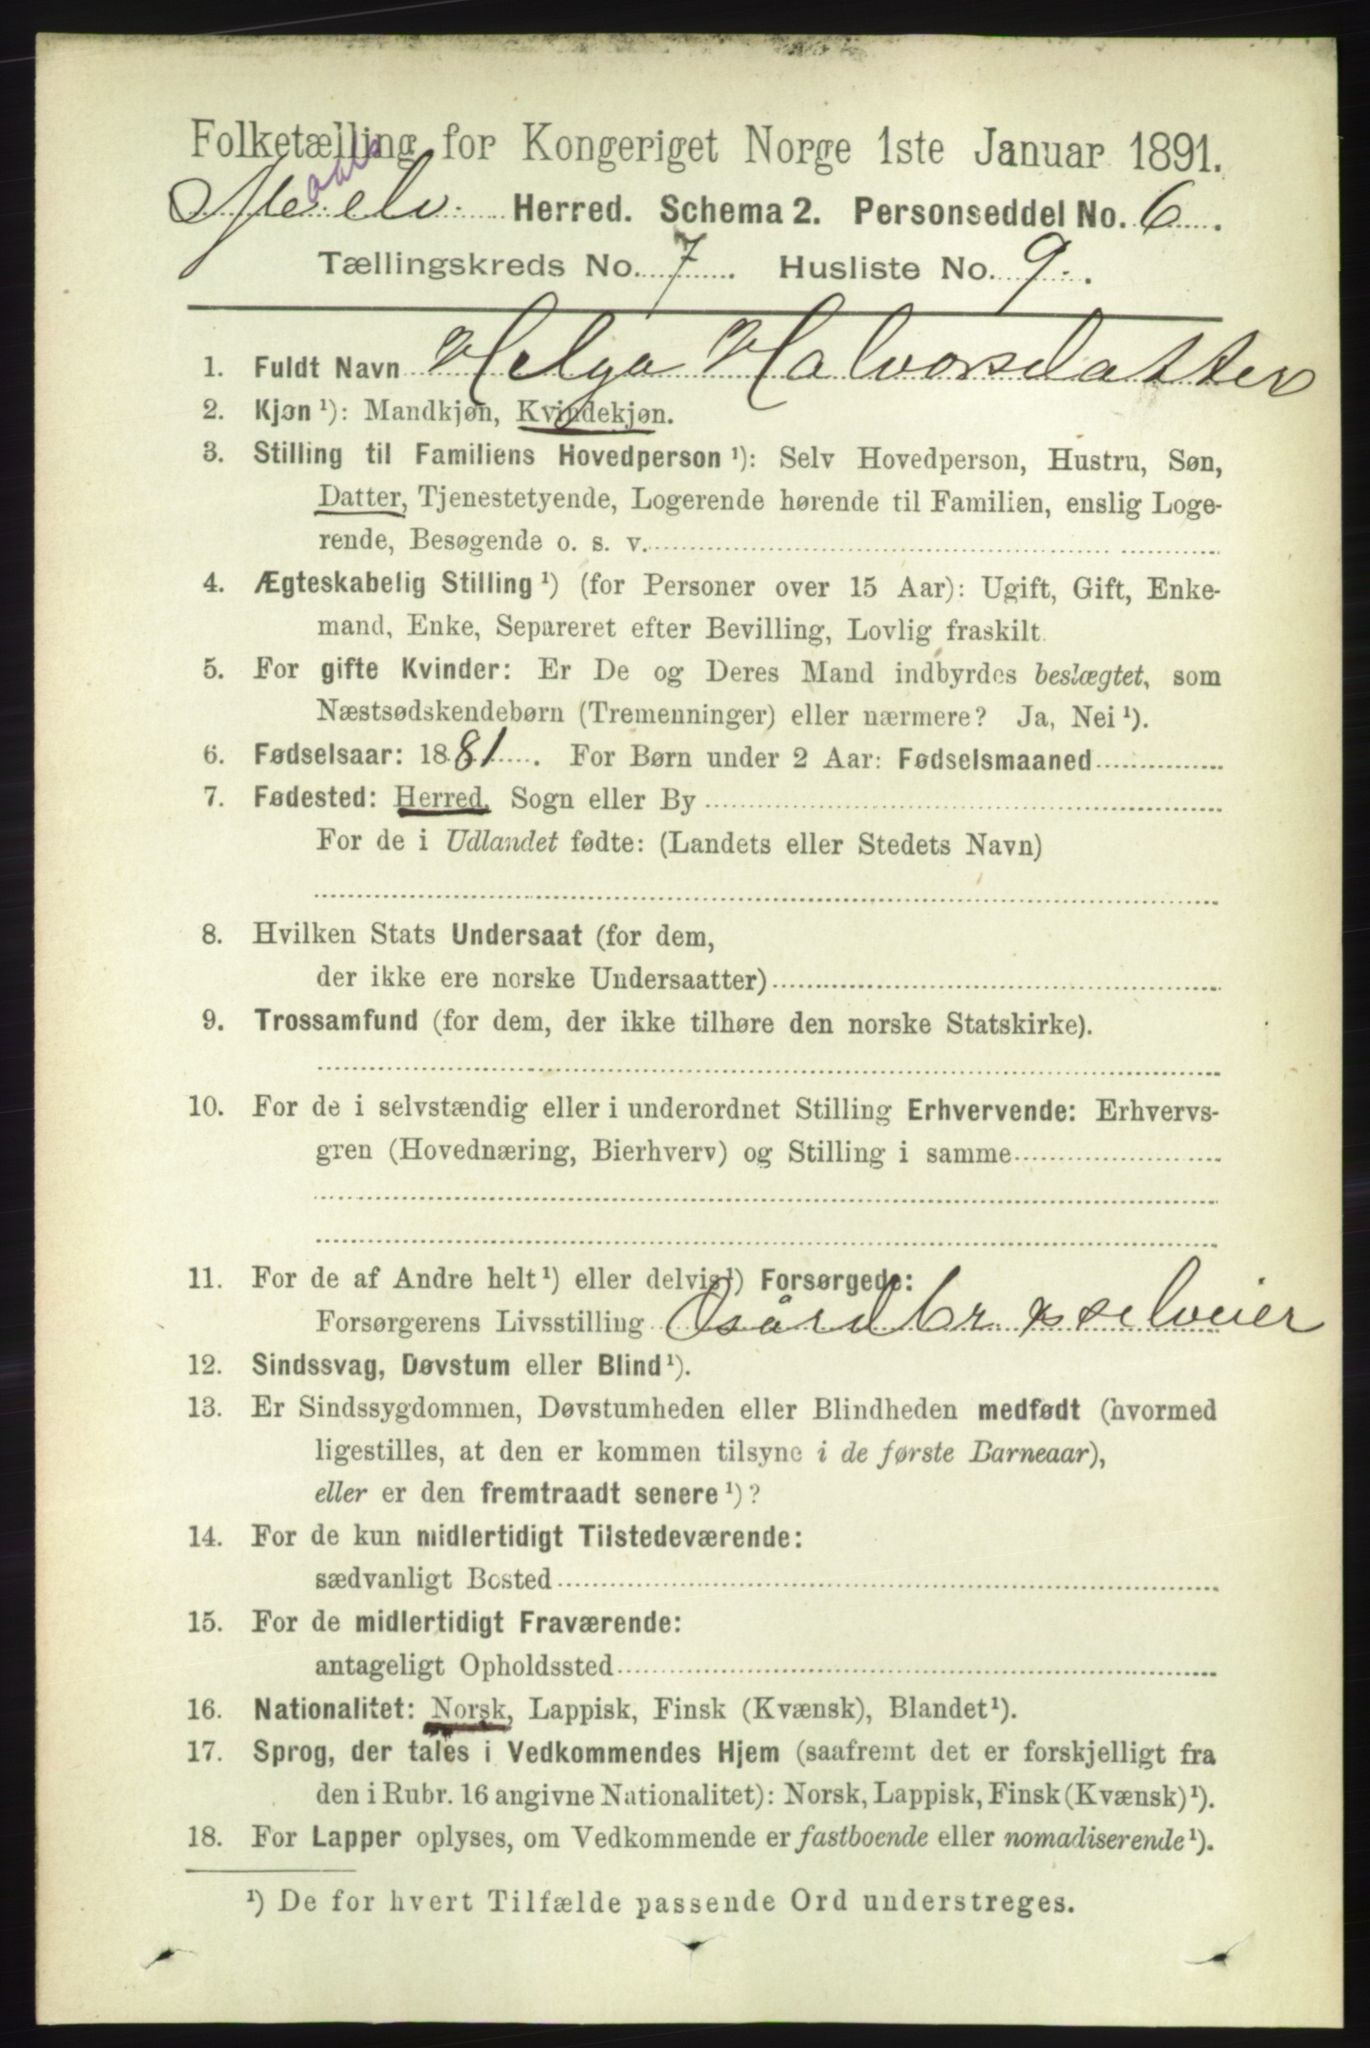 Folketælling for Kongeriget Norge 1ste Januar 1891.
Maalselv Herred. Schema 2. Personseddel No. 6.
Tællingskreds No. 7. Husliste No. 9.
1. Fuldt Navn Helga Halvorsdatter
2. Kjøn ¹): Mandkjøn, Kvindekjøn.
3. Stilling til Familiens Hovedperson ¹): Selv Hovedperson, Hustru, Søn,
Datter, Tjenestetyende, Logerende hørende til Familien, enslig Loge-
rende, Besøgende o. s. v.
4. Ægteskabelig Stilling ¹) (for Personer over 15 Aar): Ugift, Gift, Enke-
mand, Enke, Separeret efter Bevilling, Lovlig fraskilt.
5. For gifte Kvinder: Er De og Deres Mand indbyrdes beslægtet, som
Næstsødskendebørn (Tremenninger) eller nærmere? Ja, Nei ¹).
6. Fødselsaar: 1881. For Børn under 2 Aar: Fødselsmaaned
7. Fødested: Herred, Sogn eller By
For de i Udlandet fødte: (Landets eller Stedets Navn)
8. Hvilken Stats Undersaat (for dem,
der ikke ere norske Undersaatter)
9. Trossamfund (for dem, der ikke tilhøre den norske Statskirke).
10. For de i selvstændig eller i underordnet Stilling Erhvervende: Erhvervs-
gren (Hovednæring, Bierhverv) og Stilling i samme
11. For de af Andre helt ¹) eller delvis ¹) Forsørgede:
Forsørgerens Livsstilling Gårdbr x selveier
12. Sindssvag, Døvstum eller Blind ¹).
13. Er Sindssygdommen, Døvstumheden eller Blindheden medfødt (hvormed
ligestilles, at den er kommen tilsyne i de første Barneaar),
eller er den fremtraadt senere ¹)?
14. For de kun midlertidigt Tilstedeværende:
sædvanligt Bosted
15. For de midlertidigt Fraværende:
antageligt Opholdssted
16. Nationalitet: Norsk, Lappisk, Finsk (Kvænsk), Blandet ¹).
17. Sprog, der tales i Vedkommendes Hjem (saafremt det er forskjelligt fra
den i Rubr. 16 angivne Nationalitet): Norsk, Lappisk, Finsk (Kvænsk) ¹).
18. For Lapper oplyses, om Vedkommende er fastboende eller nomadiserende ¹).
¹) De for hvert Tilfælde passende Ord understreges.